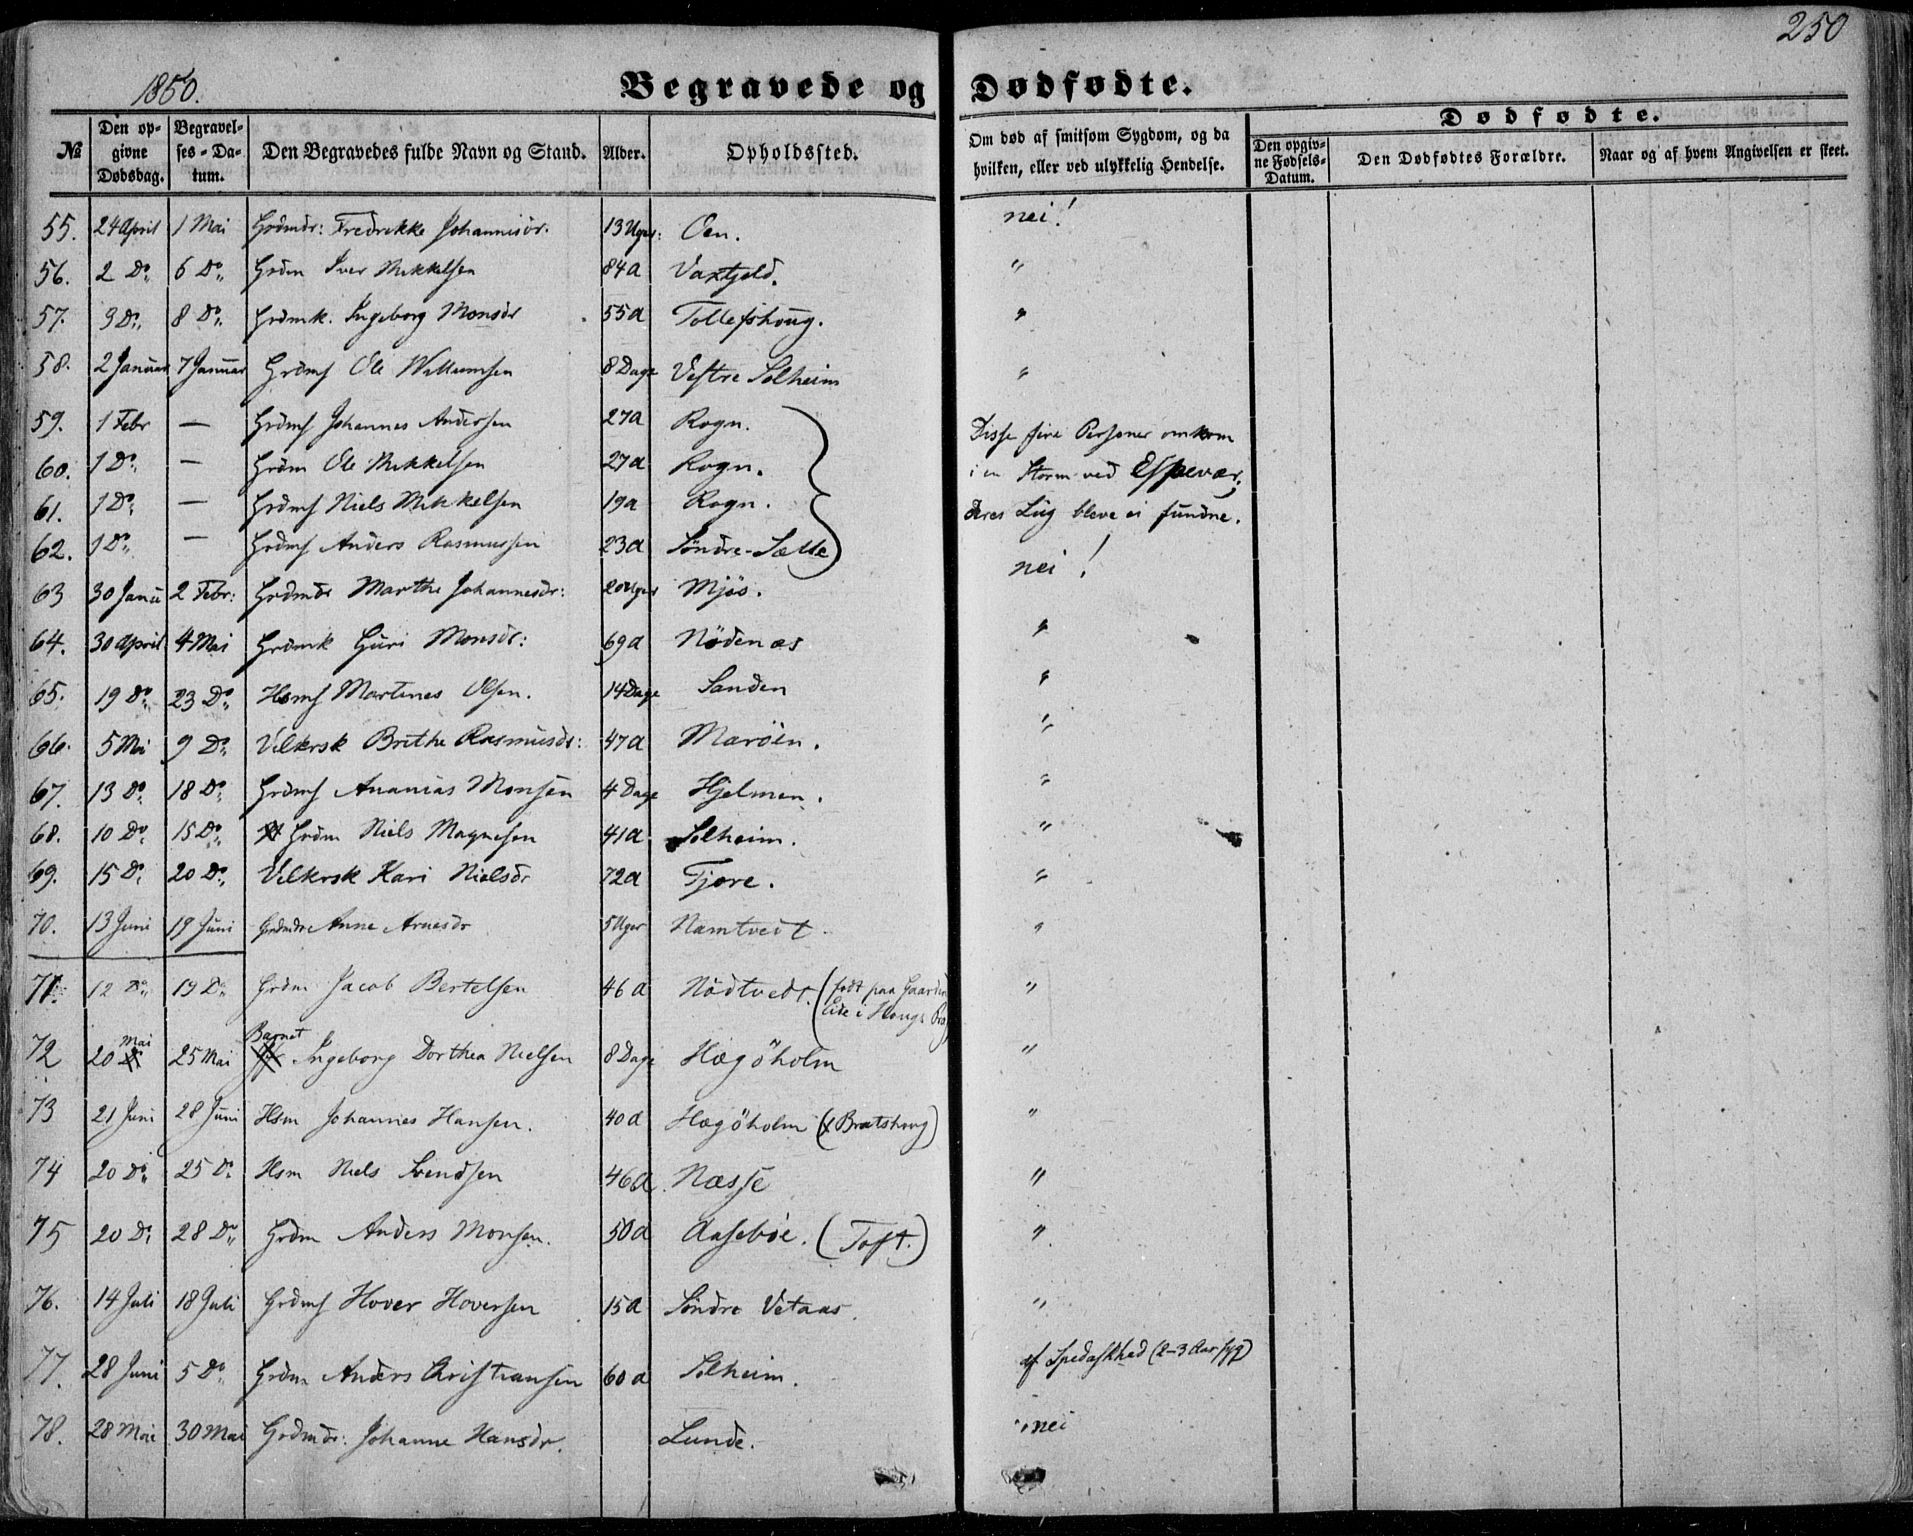 250
1850.
Begravede og Dødfødte.
№
Den opgivne Dødsdag.
Begravelses-Datum.
Den Begravedes fulde Navn og Stand.
Alder.
Opholdssted.
Om død af smitsom Sygdom, og da hvilken, eller ved ulykkelig Hendelse.
Dødfødte.
Den opgivne Fødsels-Datum.
Den Dødfødtes Forældre.
Naar og af hvem Angivelsen er skeet.
55. 24 April 1 Mai Grdmdr: Fredrikke Johannisdr. 13 Uger: Oen. nei!
56. 2 Do 6 Do Grdm Iver Mikkelsen 84 a Vaxtjeld. "
57. 3 Do 8 Do Grdmk. Ingeborg Monsdr 55 a Tollefshoug. "
58. 2 Januar 7 Januar Grdms Ole Willumsen 8 Dage Vestre Solheim "
59. 1 Febr — Grdms Johannes Andersen 27 a Rogn. Disse fire Personer omkom
60. 1 Do — Grdm Ole Mikkelsen 27 a Rogn. i en Storm ved Espevær,
61. 1 Do — Grdms Niels Mikkelsen 19 a Rogn. deres Liig bleve ei fundne.
62. 1 Do — Grdms Anders Rasmussen 23 a Söndre-Sætte
63 30 Janu 2 Febr: Grdmdr Marthe Johannesdr: 20 Uger Mjös. nei!
64. 30 April 4 Mai Grdmk Guri Monsdr: 69 a Nödenæs "
65. 19 Do 23 Do Hsms Martines Olsen. 14 Dage Sanden "
66. 5 Mai 9 Do Vilkrsk Brithe Rasmusdr: 47 a Maröen. "
67. 13 Do 18 Do Grdms Ananias Monsen 4 Dage Hjelmen. "
68. 10 Do 15 Do Grdm Niels Magnesen 41 a Solheim. "
69. 15 Do 20 Do Vilkrsk Kari Nielsdr 72 a Tjore. "
70. 13 Juni 19 Juni Grdmdr Anne Arnesdr 5 Uger Namtvedt "
71. 12 Do 19 Do Grdm Jacob Bertelsen 46 a Nödtvedt. (födt paa Gaarden Lide i Hougs "
72 20 Mai 25 Mai Barnet Ingeborg Dorthea Nielsen 8 Dage Hægöholm "
73 21 Juni 28 Juni Hsm Johannes Hansen. 40 a Hægöholm (x Bratshoug) "
74 20 Do 25 Do Hsm Niels Svendsen 46 a Næsse "
75 20 Do 28 Do Grdm Anders Monsen. 50 a Aaseböe. (Toft.) "
76. 14 Juli 18 Juli Grdms Hover Hoversen 15 a Söndre Vetaas "
77. 28 Juni 5 Do Grdm Anders Christiansen 60 a Solheim. af Spedalskhed (2-3 Aar syg)
78. 28 Mai 30 Mai Grdmdr: Johanne Hansdr. Lunde. nei